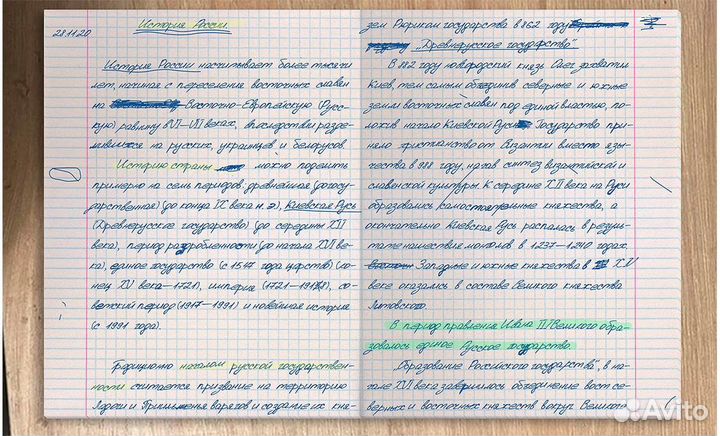 28.11.20
История России.
История России насчитывает более тысячи
лет, начиная с переселение восточных славен
на Восточно-Европейскую (Русс-
кую) равнину в VI-VII веках, впоследствии разде-
лившихся на русских, украинцев и белорусов
Историю страны можно поделить
примерно на семь периодов: древнейшая (догосу-
дарственная) (до конца IX века н.э), Киевская Русь
(Древнерусское государство) (до середины XII
века), период раздробленности (до начала XVI ве-
ка), единое государство (с 1547 года царство) (ко-
нец XV века-1721), империя (1721-1917), со-
ветский период (1917-1991) и новейшая история
(с 1991 года).
Традиционно началом русской государствен-
ности считается призвание на территорию
Ладоги и Приильменья варягов и создание их кня-
зем Рюриком государства в 862 году
„Древнерусское государство"
В 882 году новгородский князь Олег захватил
Киев, тем самым объединив северные и южные
земли восточных славен под единой властью, по-
ложив начало Киевской Руси. Государство при-
няло христианство от Византии вместо язы-
чества в 988 году, начав синтез византийской и
славенской культуры. К середине XII века на Руси
образовались самостоятельные княжества, а
окончательно Киевская Русь распалась в резуль-
тате нашествие монголов в 1237-1240 годах.
Западные и южные княжества в XIV
веке оказались в составе Великого княжества
Литовского.
В период правление Ивана III Великого обра-
зовалось единое Русское государство.
„Образование Российского государства", в на-
чале XVI века завершилось объединение вост се-
верных и восточных княжеств вокруг Великого
Avito